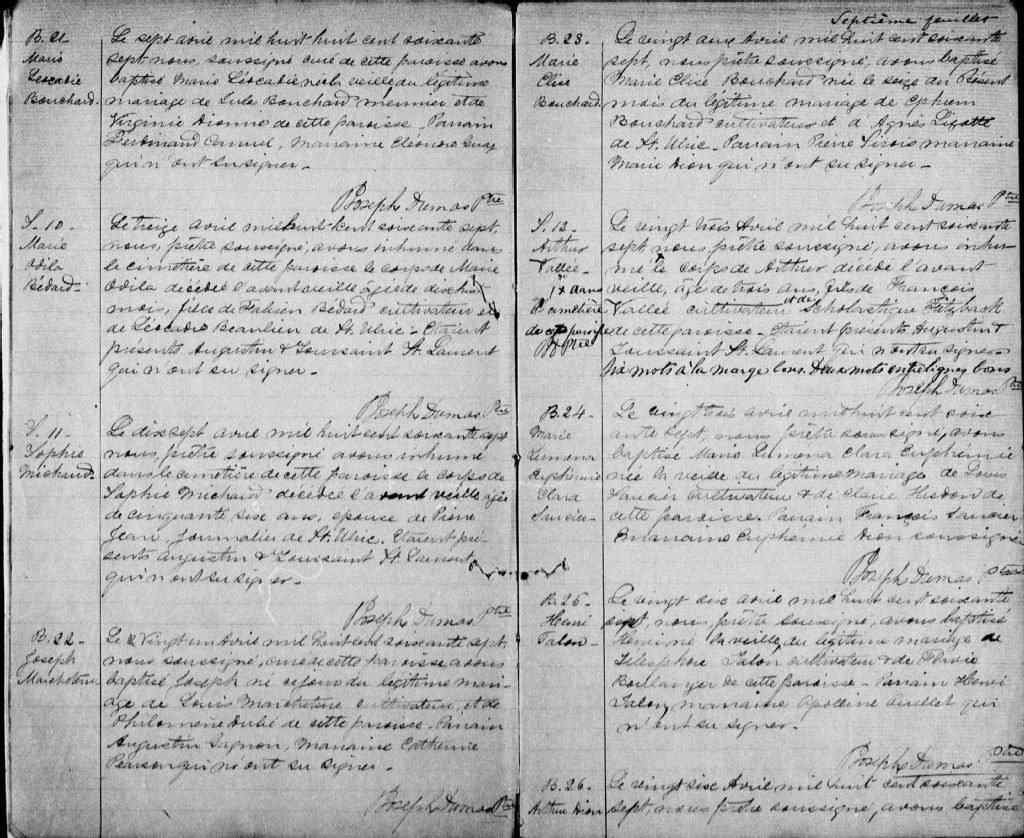 B. 21
Marie
Léocadie
Bouchard.
Le sept avril mil huit huit cent soixante
sept nous, soussigné curé de cette paroisse avons
baptisé Marie Léocadie née la veille du légitime
mariage de Lule Bouchard meunier et de
Virginie Dionne de cette paroisse - Parrain
Ferdinand Canuel, marraine Eléonore
qui n'ont su signer -
B Joseph Dumas Ptre
S. 10 -
Marie
Odila
Bédard -
Le treize avril mil huit cent soixante sept,
nous, prêtre soussigné, avons inhumé dans
le cimetière de cette paroisse le corps de Marie
Odila décédée l'avant veille âgée de dix huit
mois, fille de Fabien Bédard cultivateur et
de Léocadie Beaulieu de St. Ulric - Etaient
présents Augustin & Toussaint St. Laurent
qui n'ont su signer -
B Joseph Dumas Ptre
S. 11 -
Sophie
Michaud -
Le dix sept avril mil huit cent soixante sept
nous, prêtre soussigné avons inhumé
dans le cimetière de cette paroisse le corps de
Sophie Michaud décédée l'avant veille âgée
de cinquante six ans, épouse de Pierre
Jean, journalier de St. Ulric. Etaient pré-
sents Augustin & Toussaint St. Laurent
qui n'ont su signer -
B Joseph Dumas Ptre
B. 22 -
Joseph
Marcheterre
Le Vingt un Avril mil huit cent soixante sept,
nous soussigné, curé de cette paroisse, avons
baptisé Joseph né ce jour du légitime mari-
age de Louis Marcheterre cultivateur, et de
Philomène Dubé de cette paroisse - Parrain
Augustin Gagnon, Marraine Catherine
Pearson qui n'ont su signer -
B Joseph Dumas Ptre
Septième feuillet
B. 23 -
Marie
Elise
Bouchard
Le vingt Avril mil huit cent soixante
sept, nous prêtre soussigné, avons baptisé
Marie Elise Bouchard née le seize du Présent
mois du légitime mariage de Ephrem
Bouchard cultivateur et d'Agnès Lizotte
de St. Ulric - Parrain Pierre Sirois marraine
Marie Dion qui n'ont su signer -
B Joseph Dumas Ptre
S. 12 -
Arthur
Vallée -
dans
cimetière
de cette paroisse
Ptre
Le vingt trois Avril mil huit cent soixante
sept nous prêtre soussigné, avons inhu-
mé le corps de Arthur décédé l'avant
veille, âgé de trois ans, fils de François
Vallée cultivateur et de Scholastique Fitzback
de cette paroisse - Etaient présents Augustin &
Toussaint St. Laurent qui n'ont su signer -
Six mots à la marge bons. Deux mots interlignes bons
B Joseph Dumas Ptre
B 24 -
Marie
Dimona
Euphémie
Clara
Saucier -
Le vingt trois avril mil huit cent soix
ante sept, nous prêtre soussigné, avons
baptisé Marie Dimona Clara Euphémie
née la veille du légitime mariage de Louis
Saucier cultivateur & de Clarie Hudon de
cette paroisse. Parrain François Saucier
marraine Euphémie Dion soussigné
B Joseph Dumas Ptre
B. 25 -
Henri
Talon -
Le vingt six avril mil huit cent soixante
sept, nous, prêtre soussigné, avons baptisé
Henri né la veille du légitime mariage de
Télesphore Talon cultivateur & de Flavie
Boulanger de cette paroisse - Parrain Henri
Talon, marraine Apolline Ouellet qui
n'ont su signer -
B Joseph Dumas Ptre
B. 26 -
Arthur Dion
Le vingt six Avril mil huit cent soixante
sept, nous prêtre soussigné, avons baptisé